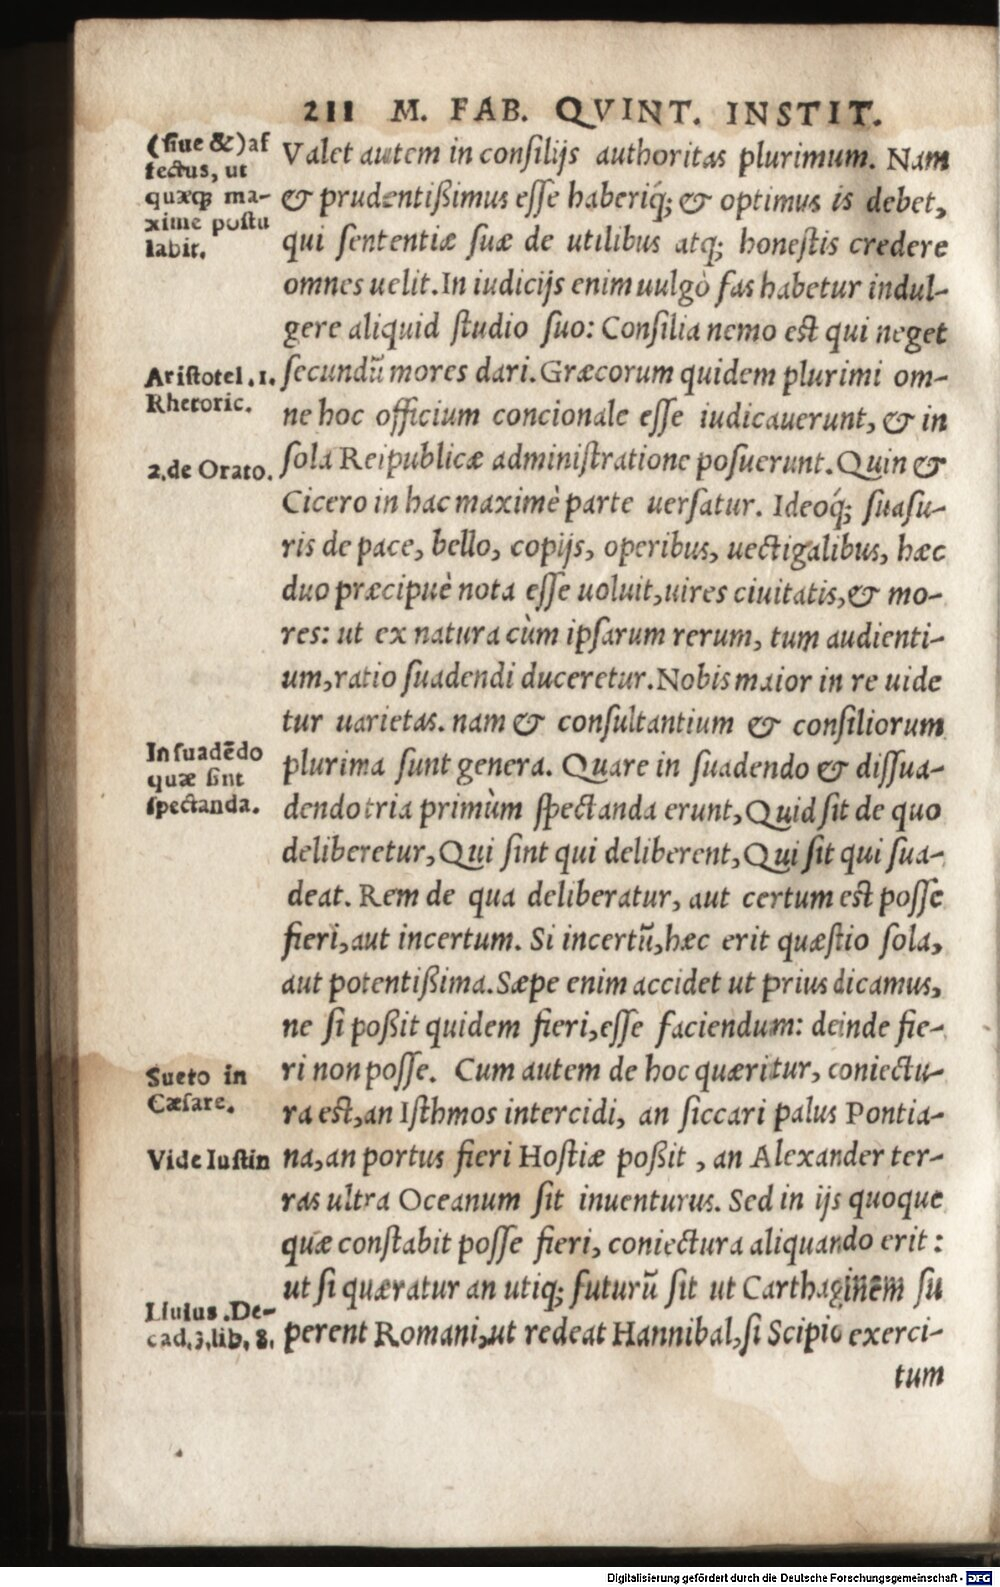 211 M. FAB. QVINT. INSTIT.
(siue &) af
fectus, ut
quæq; ma-
xime postu
labit.
Valet autem in consilijs authoritas plurimum. Nam
& prudentißimus esse haberiq́; & optimus is debet,
qui sententiæ suæ de utilibus atq; honestis credere
omnes uelit. In iudicijs enim uulgò fas habetur indul-
gere aliquid studio suo: Consilia nemo est qui neget
Aristotel. 1.
Rhetoric.
secundũ mores dari. Græcorum quidem plurimi om-
ne hoc officium concionale esse iudicauerunt, & in
2. de Orato.
sola Reipublicæ administratione posuerunt. Quin &
Cicero in hac maximè parte uersatur. Ideoq́; suasu-
ris de pace, bello, copijs, operibus, uectigalibus, hæc
duo præcipuè nota esse uoluit, uires ciuitatis, & mo-
res: ut ex natura cùm ipsarum rerum, tum audienti-
um, ratio suadendi duceretur. Nobis maior in re uide
tur uarietas. nam & consultantium & consiliorum
In suadẽdo
quæ sint
spectanda.
plurima sunt genera. Quare in suadendo & dissua-
dendo tria primùm spectanda erunt, Quid sit de quo
deliberetur, Qui sint qui deliberent, Qui sit qui sua-
deat. Rem de qua deliberatur, aut certum est posse
fieri, aut incertum. Si incertũ, hæc erit quæstio sola,
aut potentißima. Sæpe enim accidet ut prius dicamus,
ne si poßit quidem fieri, esse faciendum: deinde fie-
Sueto in
Cæsare.
ri non posse. Cum autem de hoc quæritur, coniectu-
ra est, an Isthmos intercidi, an siccari palus Pontia-
Vide Iustin
na, an portus fieri Hostiæ poßit, an Alexander ter-
ras ultra Oceanum sit inuenturus. Sed in ijs quoque
quæ constabit posse fieri, coniectura aliquando erit:
ut si quæratur an utiq; futurũ sit ut Carthaginẽm su
Liuius. De-
cad. 3. lib. 8.
perent Romani, ut redeat Hannibal, si Scipio exerci-
tum
Digitalisierung gefördert durch die Deutsche Forschungsgemeinschaft - DFG